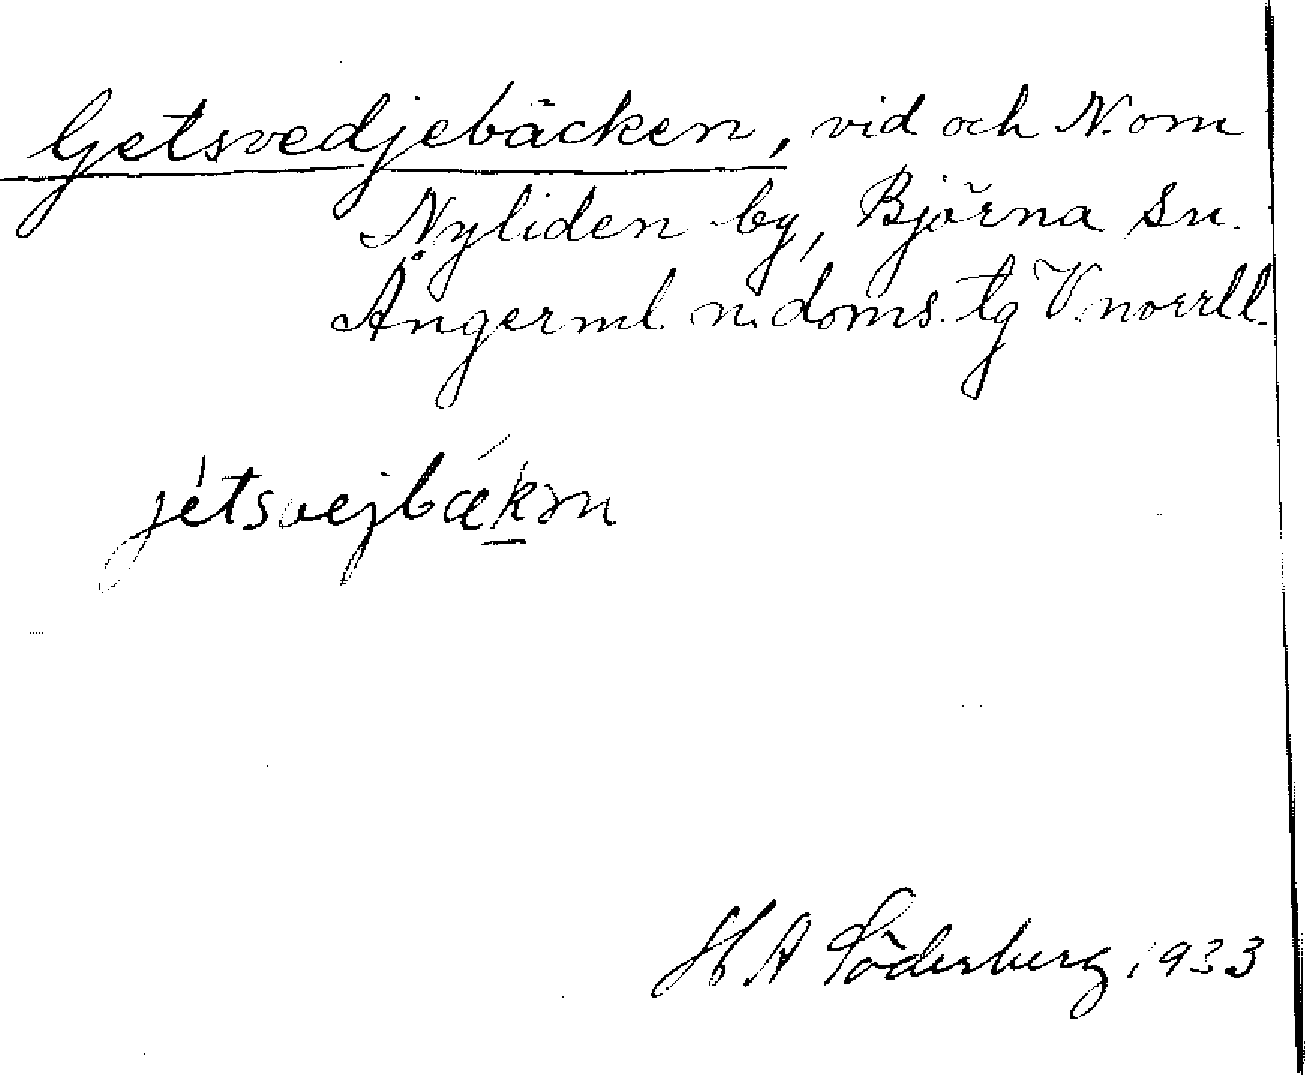 Getsvedjebäcken, vid och N. om
Nyliden by, Björna sn.
Ångerml. n. doms. tg V. norrl.
jétsvejbækən
H A Söderberg 1933